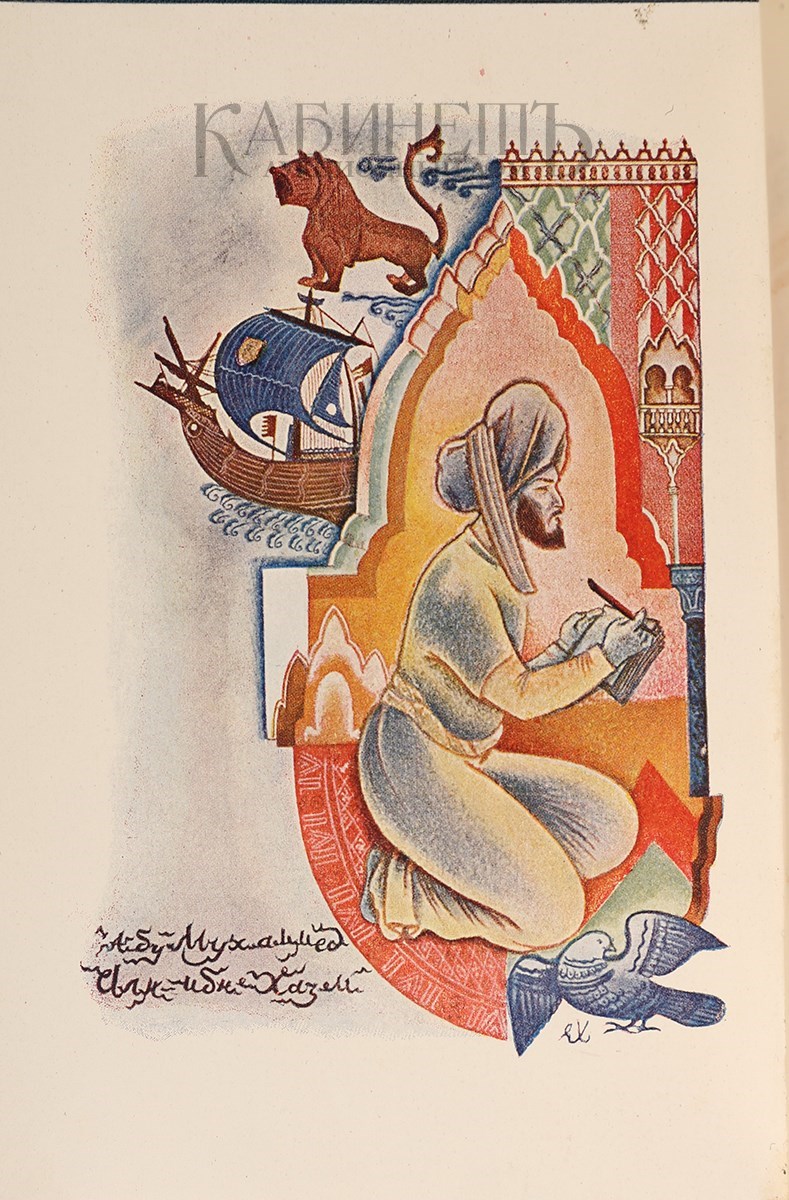 КАБИНЕТЪ
Абу Мухаммед
Али ибн Хазм
ЕК